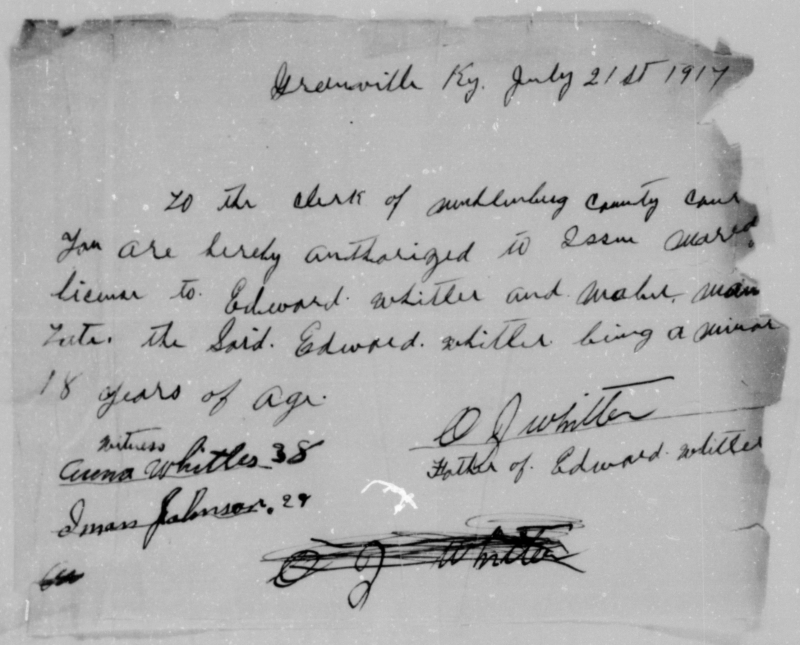 Greenville Ky. July 21st 1917
To the clerk of Muhlenburg County Cour
You are hereby authorized to Issue
license to. Edward. Whitler and Mabel.
the Said. Edward. Whitler being a minor
18 years of age.
O J Whitler
Father of. Edward. Whitler
Witness
Anna Whitler 38
Johnson. 29
O J Whitler